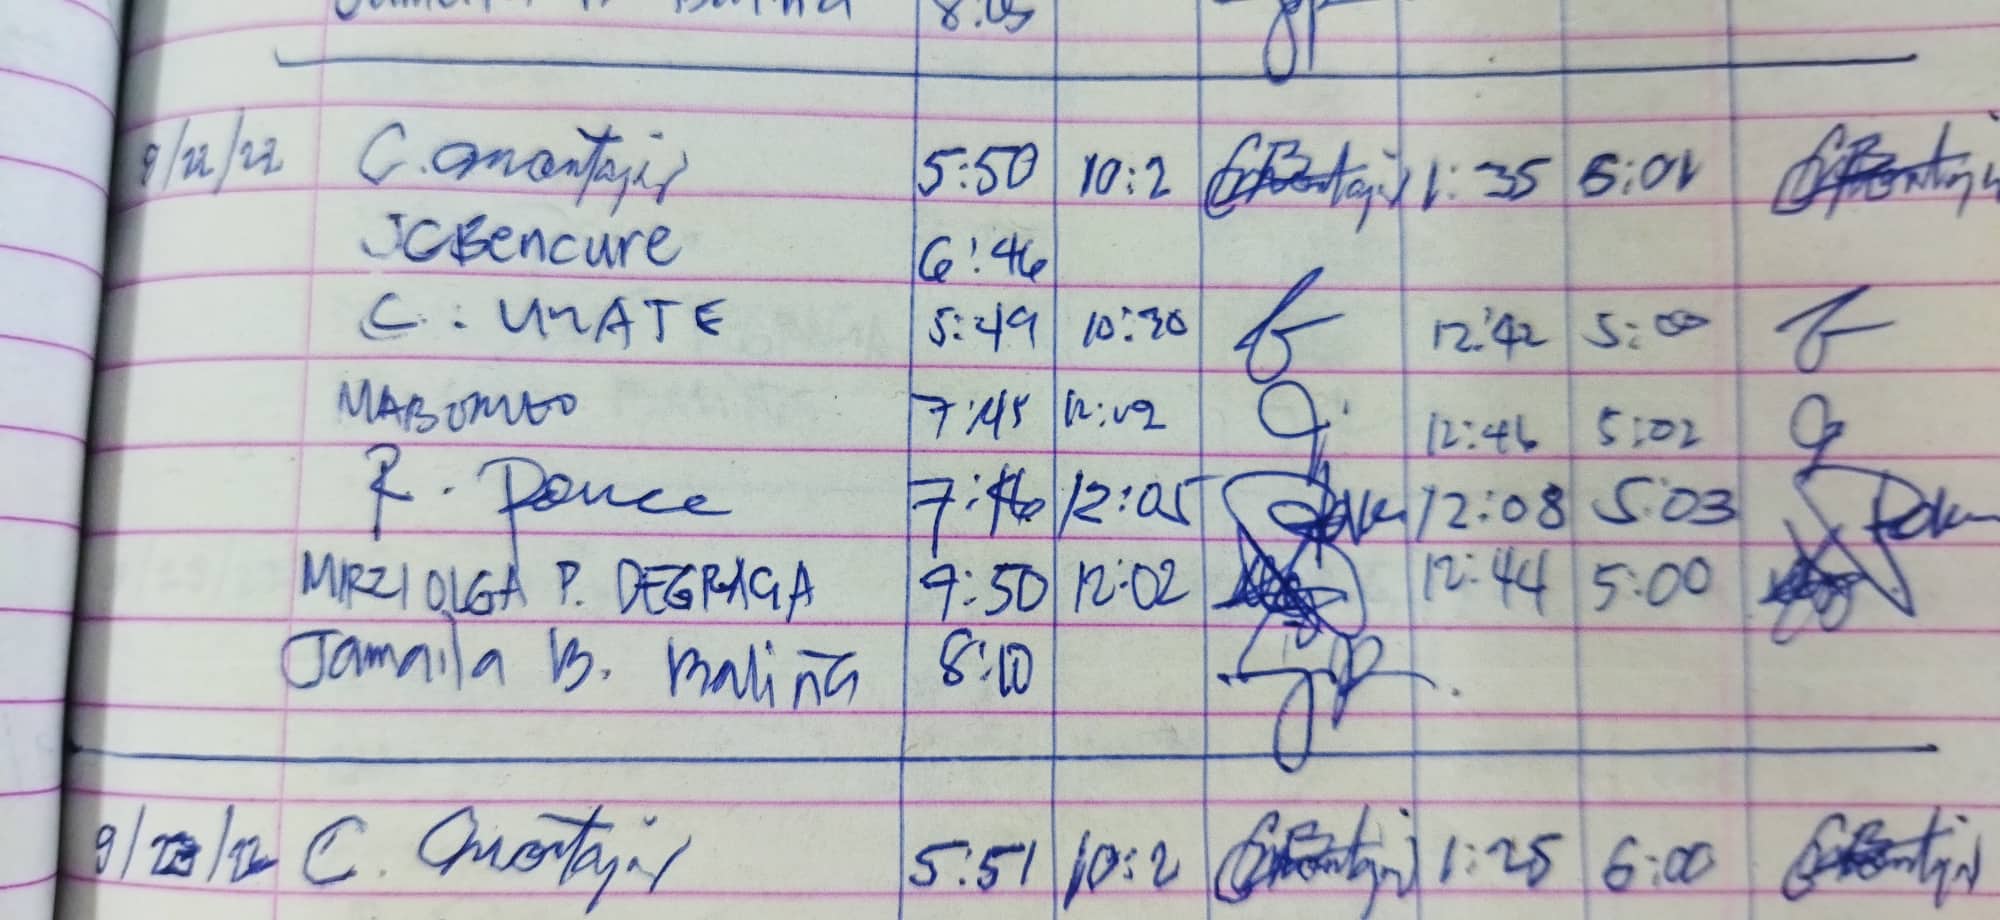 8:05
9/22/22 C. Montajis 5:50 10:2 1:35 5:01
JCBencure 6:46
C. UNATE 5:49 10:30 12:42 5:00
7:45 12:02 12:46 5:02
R. Ponce 7:46 12:05 12:08 5:03
MIRZI OLGA P. DEGRAGA 9:50 12:02 12:44 5:00
Jamaila B. Baliña 8:10
9/23/22 C. Montajis 5:51 10:2 1:25 6:00